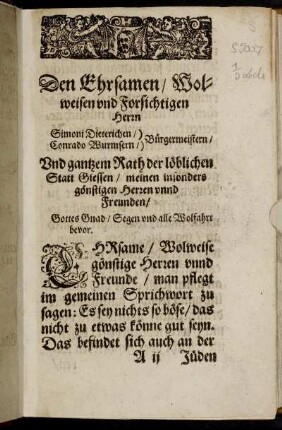 Den Ehrsamen / Wol-
weisen vnd Forsichtigen
Herrn
Simoni Dieterichen / )
Conrado Wurmsern / ) Bürgermeistern /
Vnd gantzem Rath der löblichen
Statt Giessen / meinen insonders
günstigen Herren vnnd
Freunden /
Gottes Gnad / Segen vnd alle Wolfahrt
bevor.
EHRsame / Wolweise
günstige Herren vnnd
Freunde / man pflegt
im gemeinen Sprichwort zu
sagen: Es sey nichts so böse / das
nicht zu etwas könne gut seyn.
Das befindet sich auch an der
A ij Jüden